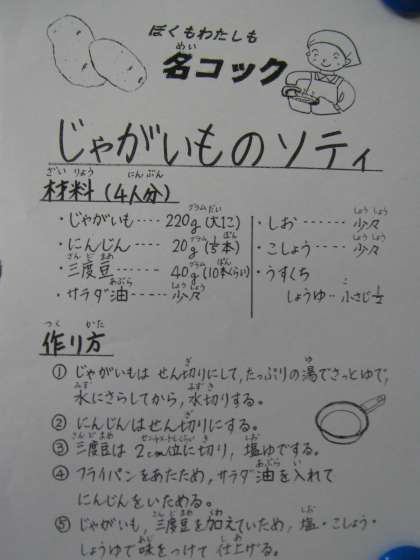 ぼくもわたしも
名コック
じゃがいものソティ
材料(4人分)
・じゃがいも‥‥ 220g(大1こ)
・にんじん‥‥‥ 20g(1/5本)
・三度豆‥‥‥‥ 40g(10本くらい)
・サラダ油‥‥‥ 少々
・しお‥‥‥ 少々
・こしょう‥‥ 少々
・うすくち
しょうゆ‥小さじ1/2
作り方
① じゃがいもは せん切りにして,たっぷりの湯でさっとゆで,
水にさらしてから,水切りする。
② にんじんはせん切りにする。
③ 三度豆は 2cm位に切り,塩ゆでする。
④ フライパンをあたため,サラダ油を入れて
にんじんをいためる。
⑤ じゃがいも,三度豆を加えていため,塩・こしょう・
しょうゆで味をつけて仕上げる。